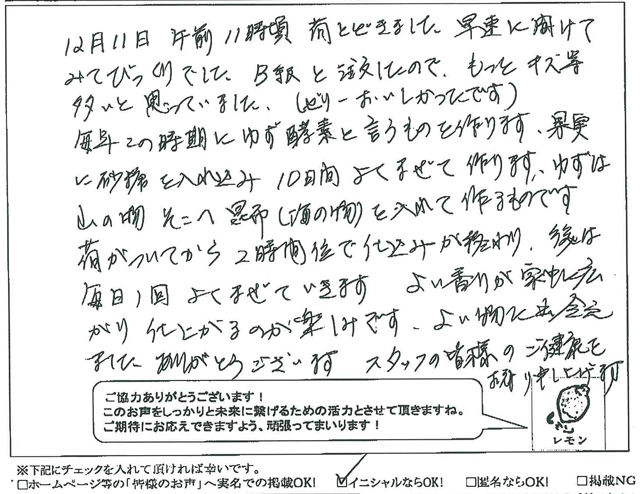 12月11日 午前11時頃 荷とどきました 早速に開けて
みてびっくりでした、B級と注文したので、もっとキズ等
多いと思っていました、(ゼリーおいしかったです)
毎年この時期にゆず酵素と言うものを作ります、果実
に砂糖を入れ込み 10日間よくまぜて作ります、ゆずは
山の物 そこへ昆布(海の物)を入れて作るものです
荷がついてから2時間位で仕込みが終わり、後は
毎日1回よくまぜていきます よい香りが家中に広
がり仕上がるのが楽しみです、よい物に出会え
ました ありがとうございます スタッフの皆様のご健康を
お祈り申し上げます
ご協力ありがとうございます！
このお声をしっかりと未来に繋げるための活力とさせて頂きますね。
ご期待にお応えできますよう、頑張ってまいります！
レモン
※下記にチェックを入れて頂ければ幸いです。
□ホームページ等の「皆様のお声」へ実名での掲載OK! ☑イニシャルならOK! □匿名ならOK! □掲載NG